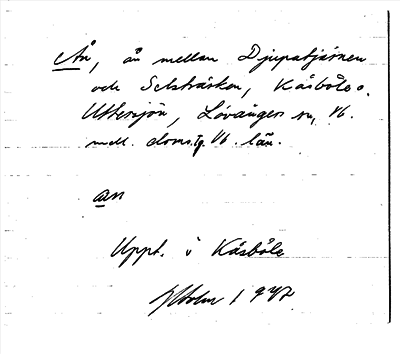 Ån, ån mellan Djupatjärnen
och Selsträsken, Kåsböle o.
Uttersjön, Lövånger sn, Vb.
mell. doms. tg. Vb. län.
an
Uppt. i Kåsböle
1942